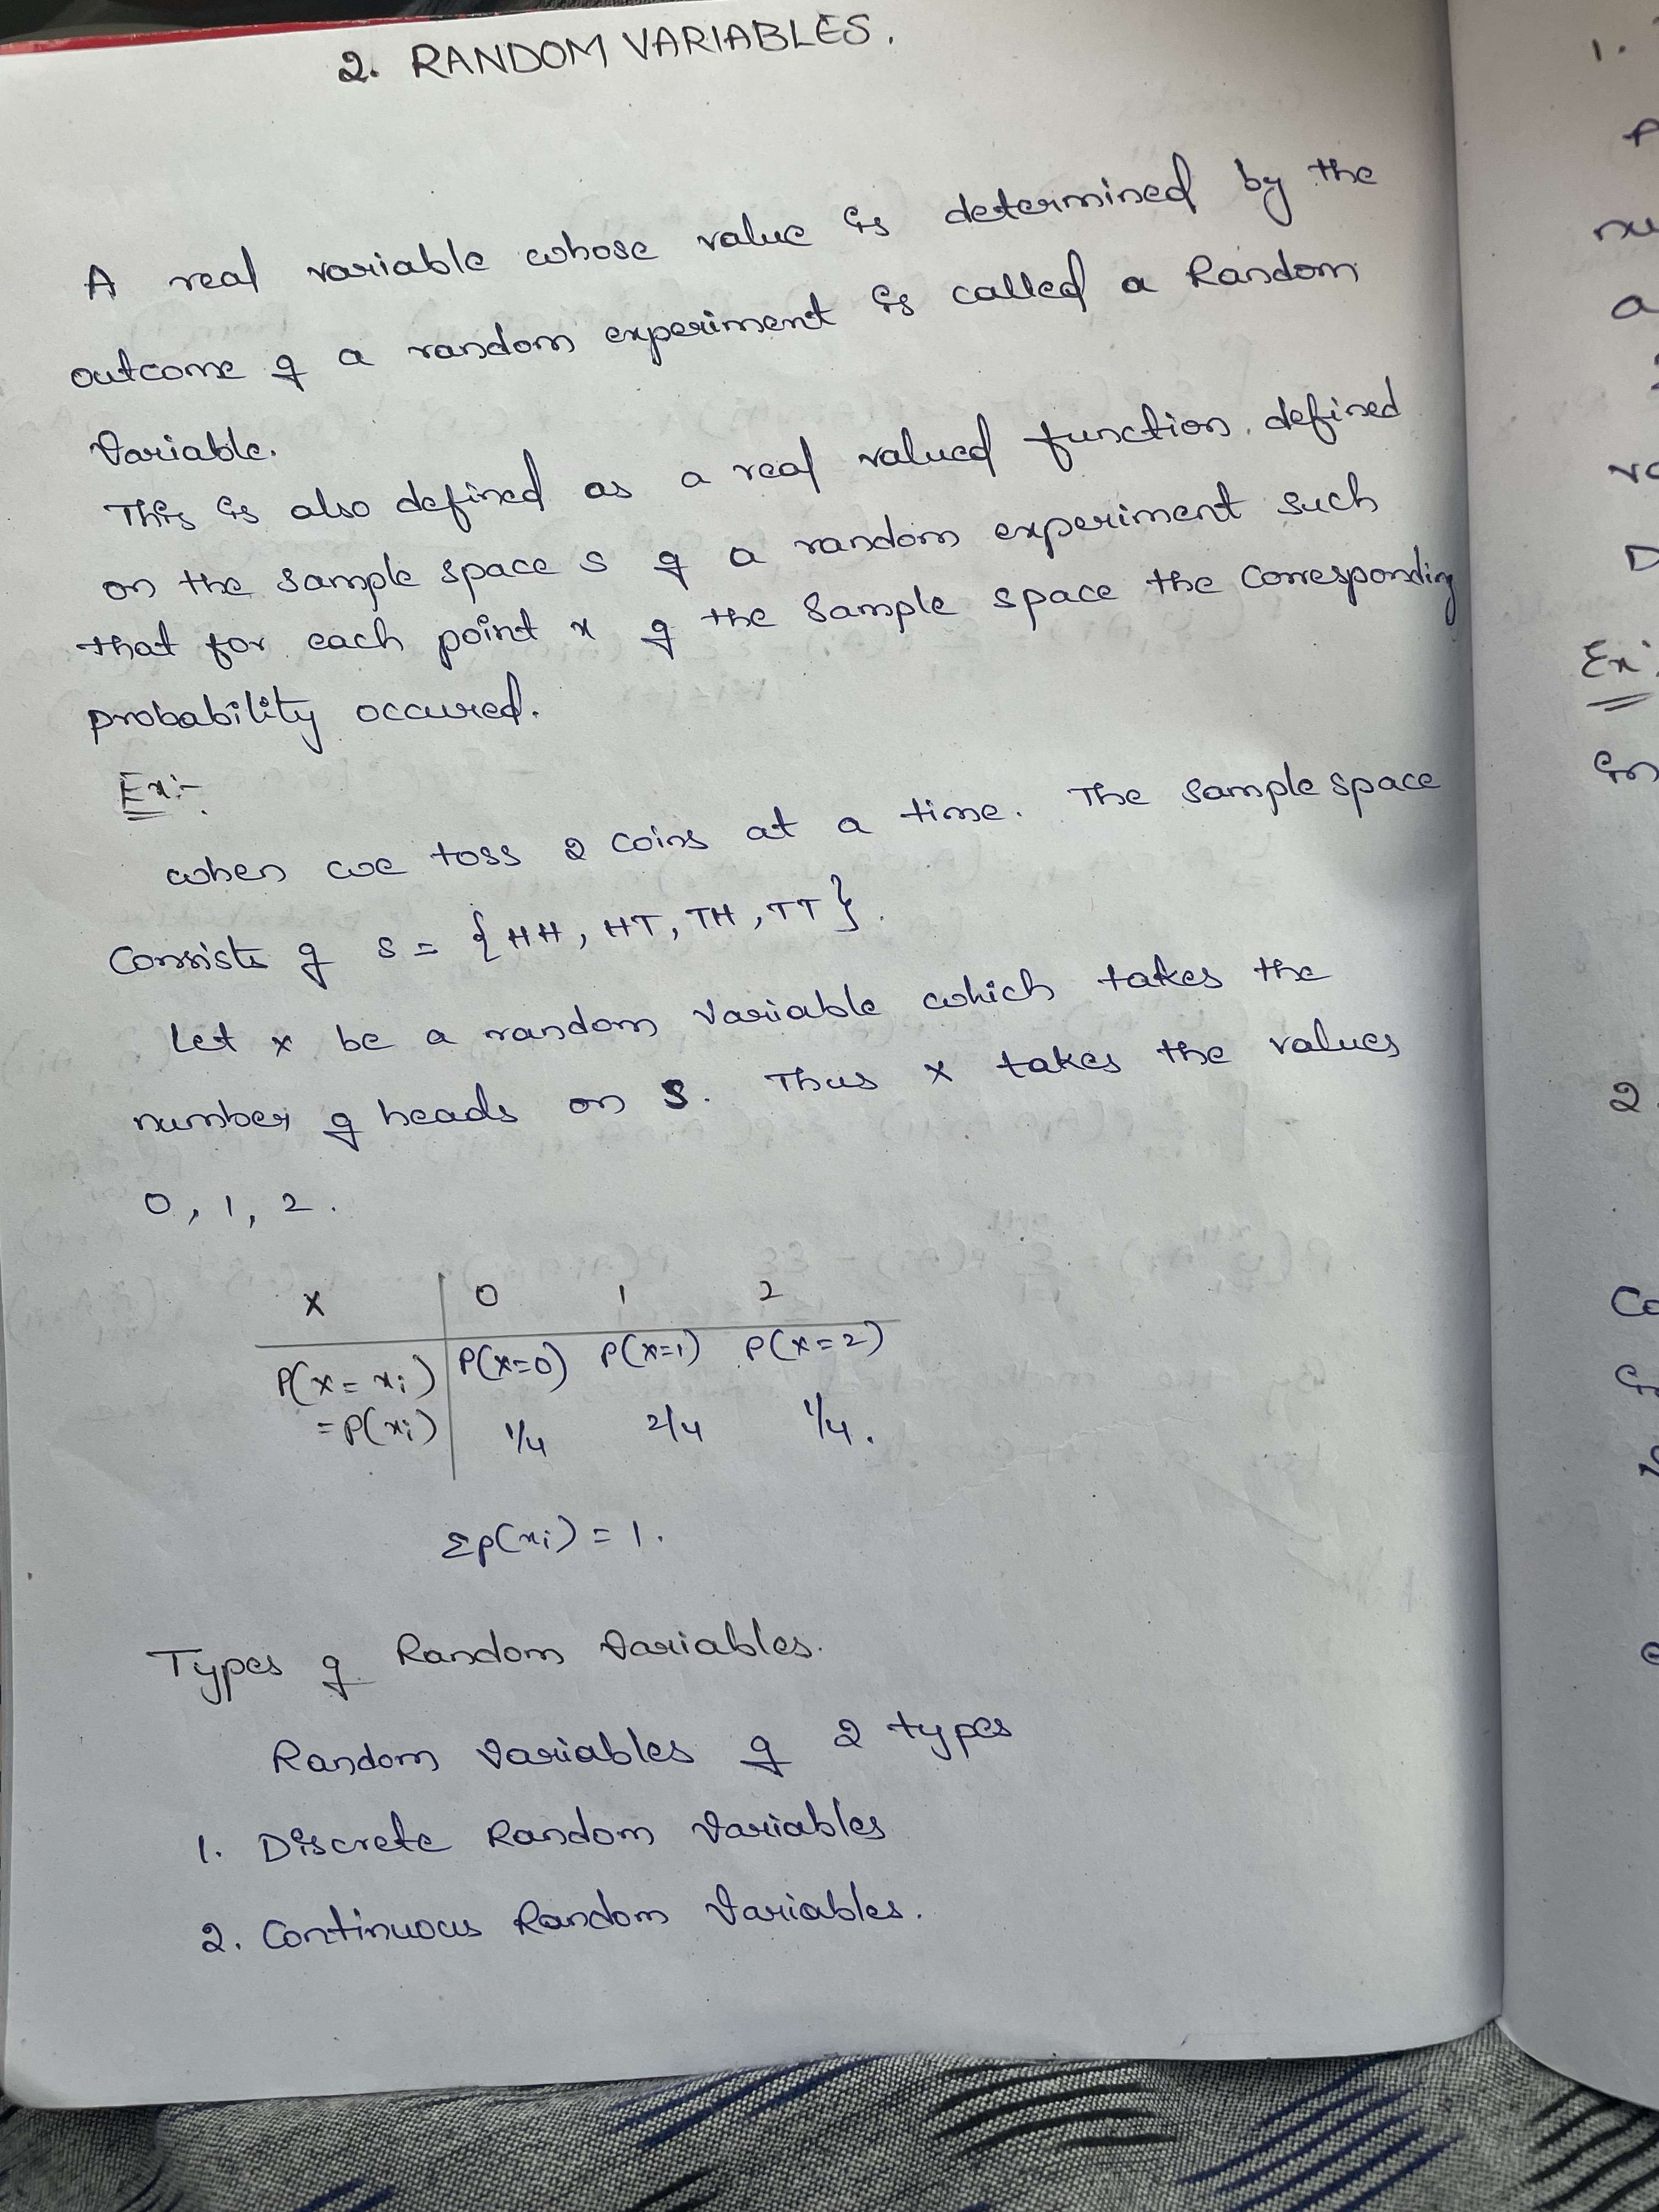 2. RANDOM VARIABLES.
A real variable whose value is determined by the
outcome of a random experiment is called a Random
Variable.
This is also defined as a real valued function defined
on the sample space S of a random experiment such
that for each point x of the sample space the corresponding
probability occured.
Ex:-
when we toss 2 coins at a time. The sample space
Consists of S = {HH, HT, TH, TT}.
Let x be a random variable which takes the
number of heads on S. Thus x takes the values
0, 1, 2.
x 0 1 2
P(x = xi) P(x=0) P(x=1) P(x=2)
=P(xi) 1/4 2/4 1/4.
Σp(xi) = 1.
Types of Random Variables.
Random Variables of 2 types
1. Discrete Random Variables
2. Continuous Random Variables.
1.
a
D
Ex:
2.